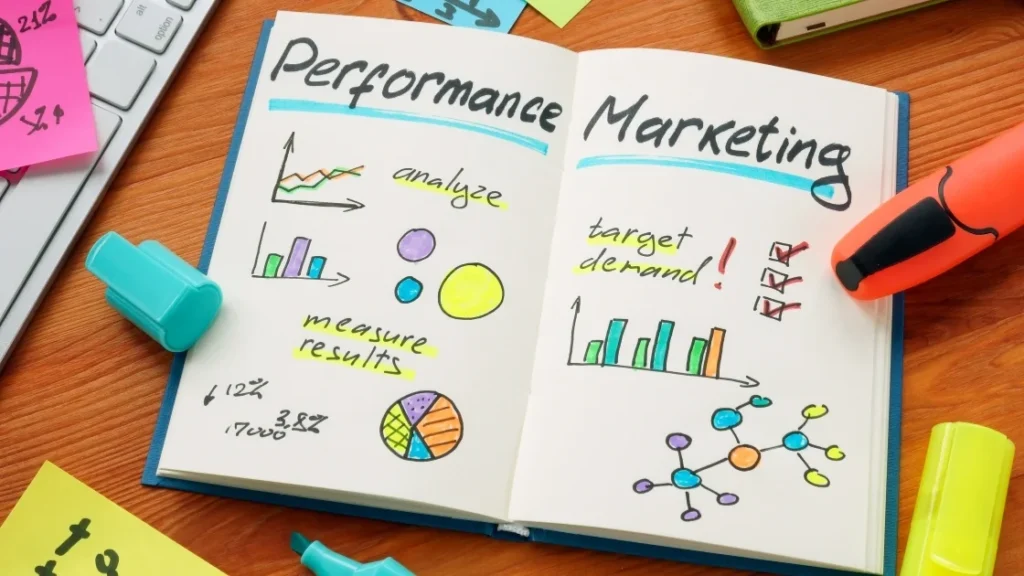 Performance
analyze
measure
results
12%
3.8%
17000
Marketing
target
demand!
21%
option
alt
to